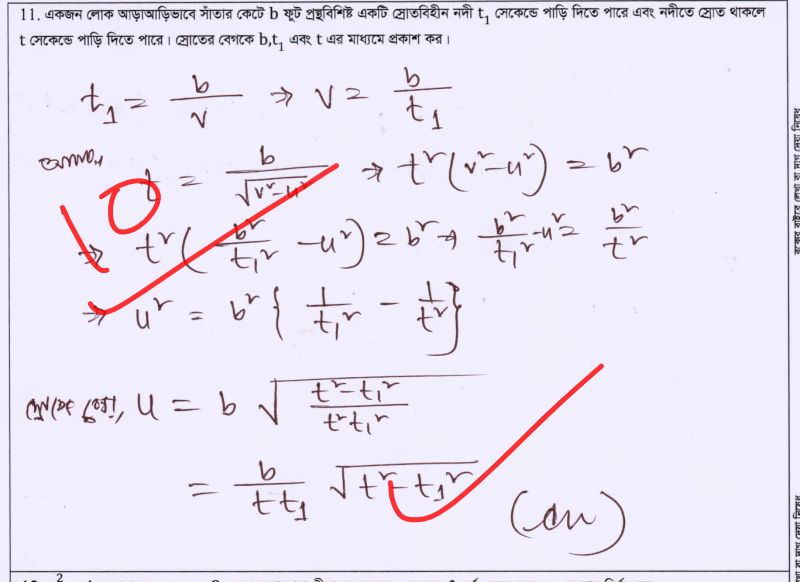 11. একজন লোক আড়াআড়িভাবে সাঁতার কেটে b ফুট প্রস্থবিশিষ্ট একটি স্রোতবিহীন নদী t₁ সেকেন্ডে পাড়ি দিতে পারে এবং নদীতে স্রোত থাকলে
t সেকেন্ডে পাড়ি দিতে পারে। স্রোতের বেগকে b,t₁ এবং t এর মাধ্যমে প্রকাশ কর।
t₁ = b/v ⇒ v = b/t₁
t = b/√(v²-u²) ⇒ t²(v²-u²) = b²
10
⇒ t²(b²/t₁² - u²) = b² ⇒ b²/t₁² - u² = b²/t²
⇒ u² = b²{1/t₁² - 1/t²}
u = b √((t²-t₁²)/(t²t₁²))
= b/(tt₁) √(t²-t₁²)